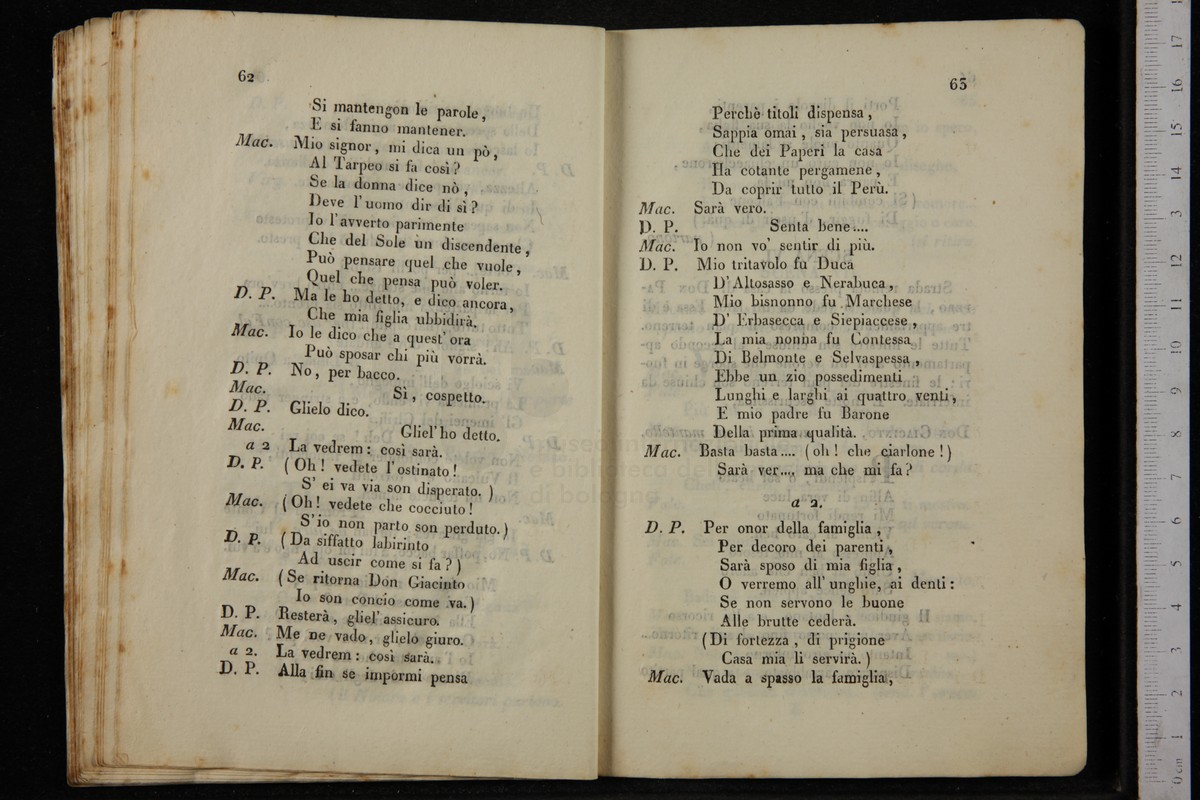 62
Si mantengon le parole,
E si fanno mantener.
Mac. Mio signor, mi dica un pò,
Al Tarpeo si fa così?
Se la donna dice nò,
Deve l'uomo dir di sì?
Io l'avverto parimente
Che del Sole un discendente,
Può pensare quel che vuole,
Quel che pensa può voler.
D. P. Ma le ho detto, e dico ancora,
Che mia figlia ubbidirà.
Mac. Io le dico che a quest'ora
Può sposar chi più vorrà.
D. P. No, per bacco.
Mac. Sì, cospetto.
D. P. Glielo dico.
Mac. Gliel'ho detto.
a 2 La vedrem: così sarà.
D. P. (Oh! vedete l'ostinato!
S' ei va via son disperato.)
Mac. (Oh! vedete che cocciuto!
S'io non parto son perduto.)
D. P. (Da siffatto labirinto
Ad uscir come si fa?)
Mac. (Se ritorna Don Giacinto
Io son concio come va.)
D. P. Resterà, gliel' assicuro.
Mac. Me ne vado, glielo giuro.
a 2. La vedrem: così sarà.
D. P. Alla fin se impormi pensa
63
Perchè titoli dispensa,
Sappia omai, sia persuasa,
Che dei Paperi la casa
Ha cotante pergamene,
Da coprir tutto il Perù.
Mac. Sarà vero.
D. P. Senta bene....
Mac. Io non vo' sentir di più.
D. P. Mio tritavolo fu Duca
D' Altosasso e Nerabuca,
Mio bisnonno fu Marchese
D' Erbasecca e Siepiaccese,
La mia nonna fu Contessa
Di Belmonte e Selvaspessa,
Ebbe un zio possedimenti
Lunghi e larghi ai quattro venti,
E mio padre fu Barone
Della prima qualità.
Mac. Basta basta.... (oh! che ciarlone!)
Sarà ver.... ma che mi fa?
a 2.
D. P. Per onor della famiglia,
Per decoro dei parenti,
Sarà sposo di mia figlia,
O verremo all' unghie, ai denti:
Se non servono le buone
Alle brutte cederà.
(Di fortezza, di prigione
Casa mia li servirà.)
Mac. Vada a spasso la famiglia,